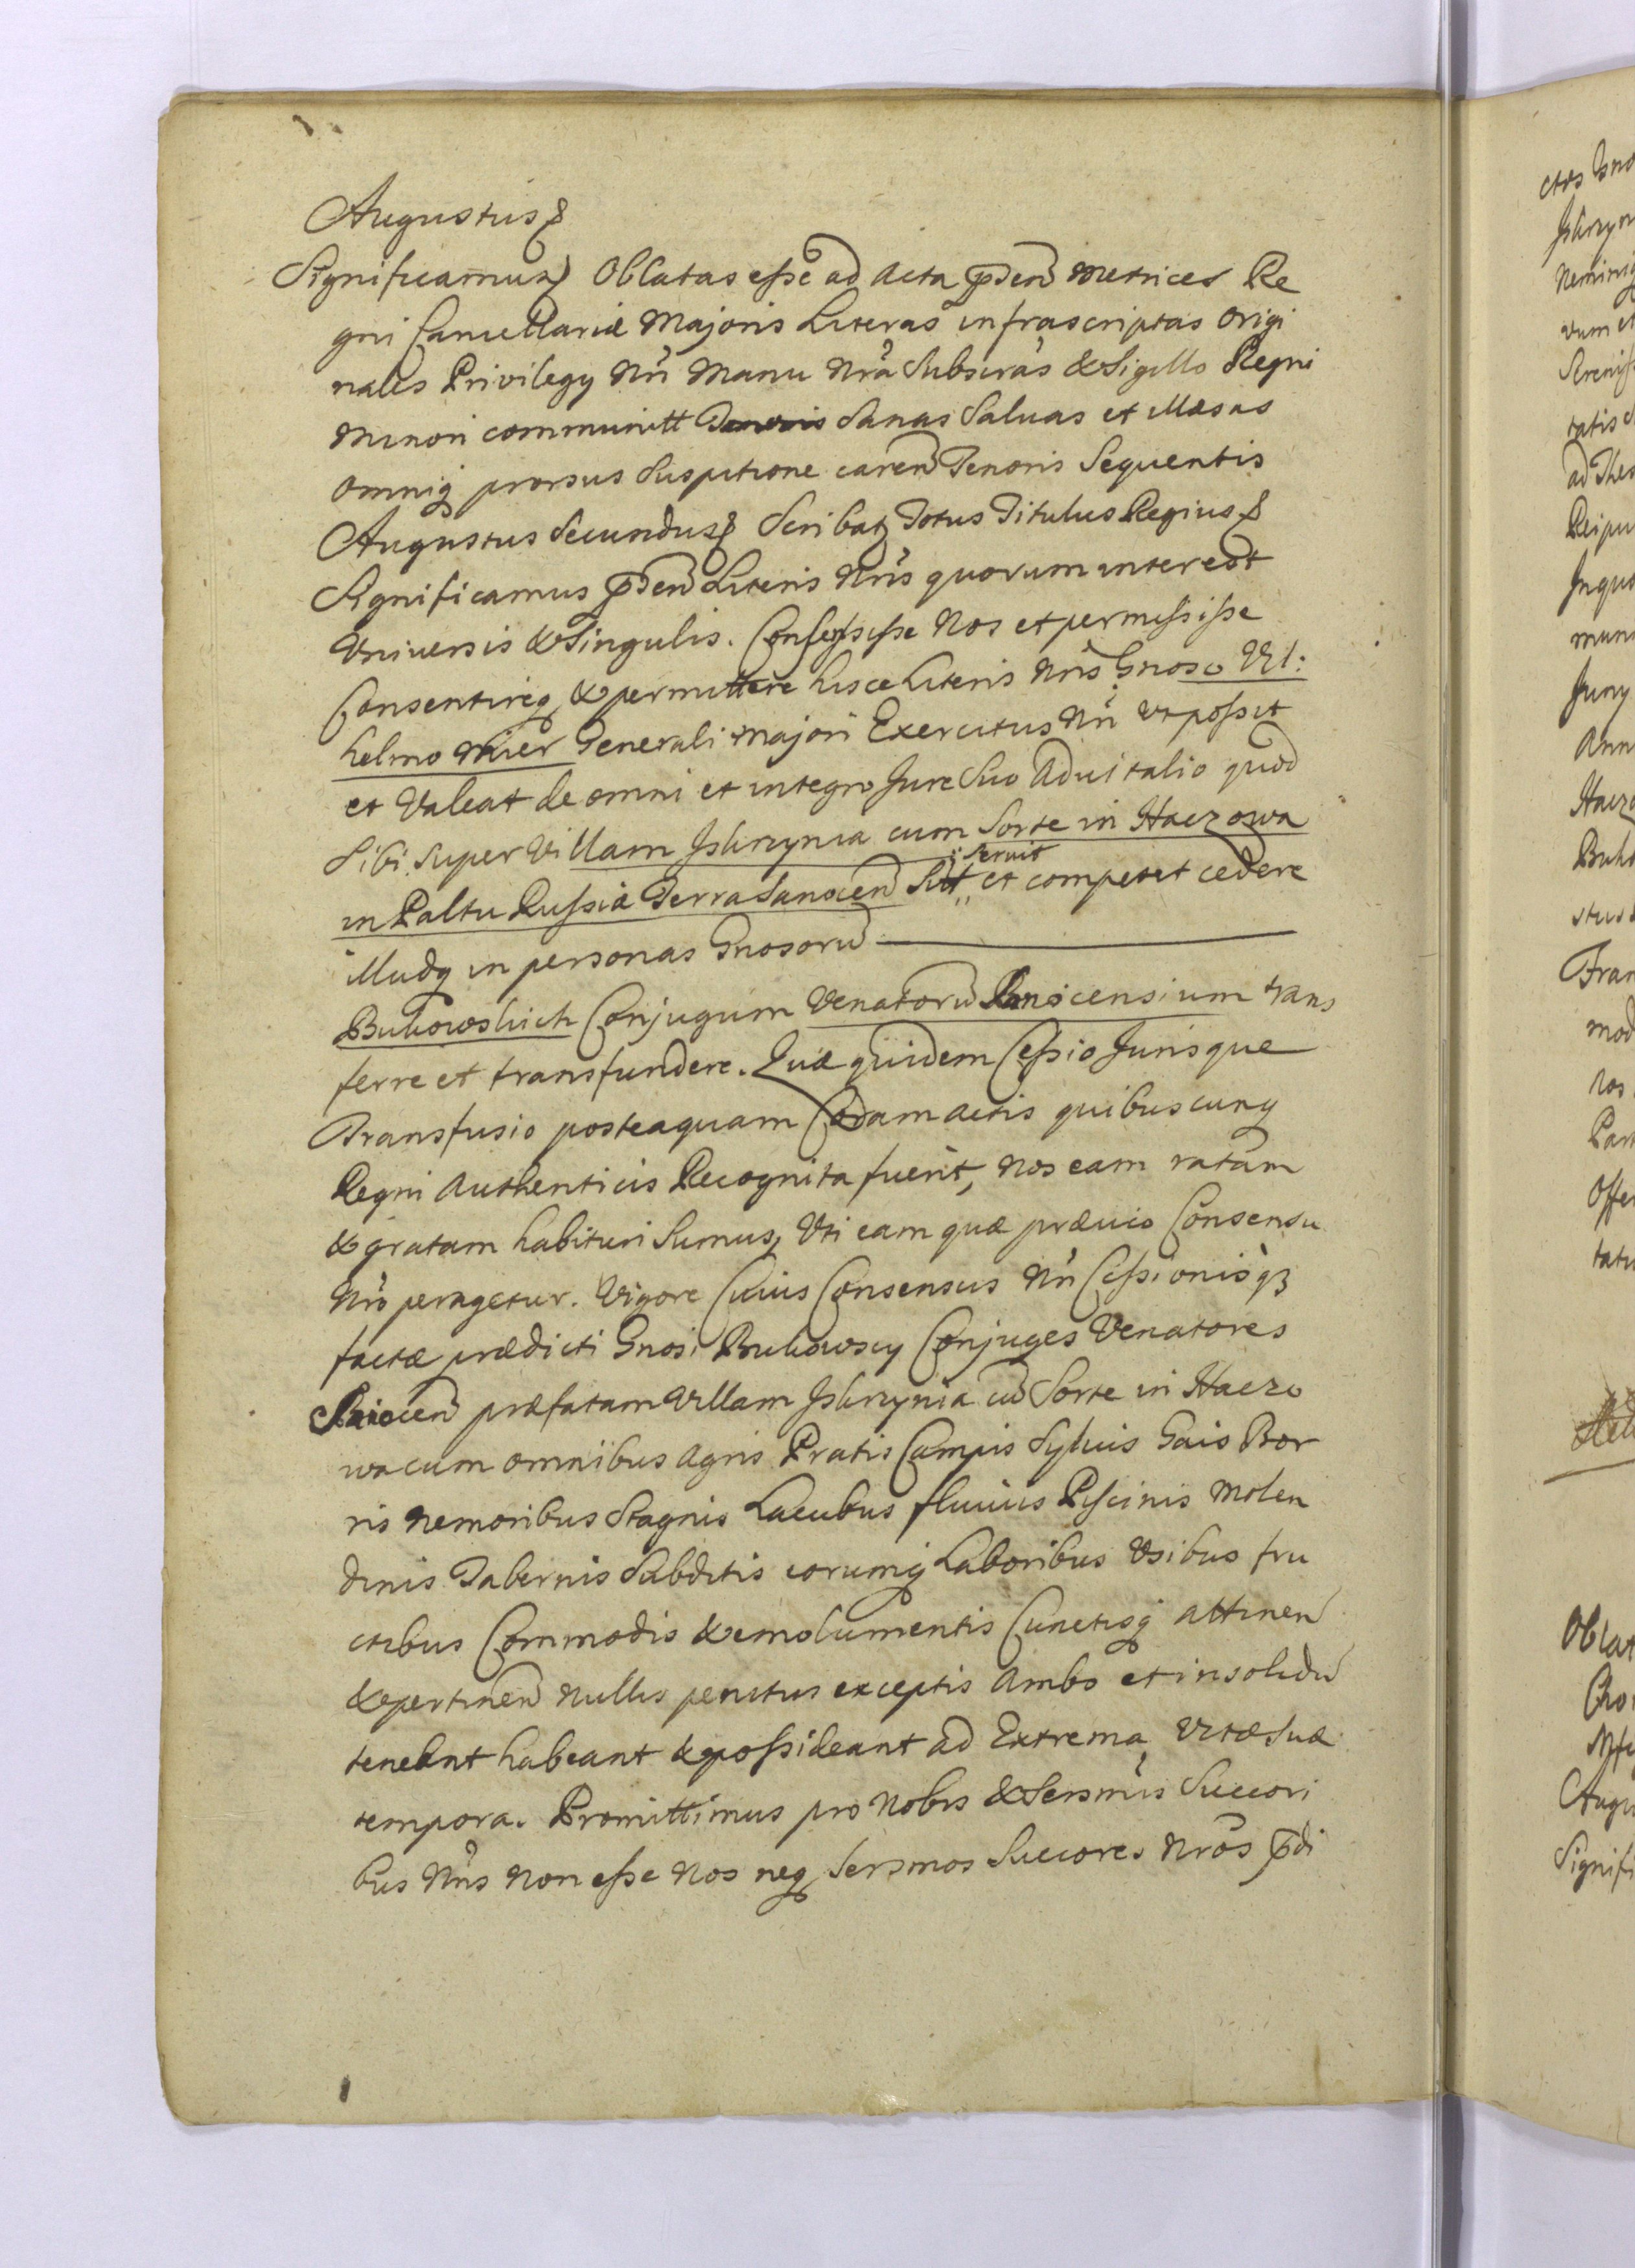 Augustus &
Significamus Oblatas esse ad Acta pñten Metrices Re
gni Cancellariæ Majoris Literas infrascriptas origi
nales Privilegy Nri Manu Nra Subscras & Sigillo Regni
Minori communitt Sanas Saluas et illæsas
omniq prorsus suspitione caren Tenoris Sequentis
Augustus Secundus & Scribatz Totus Titulus Regius &
Significamus pñten Literis Nris quorum interest
Universis & Singulis. Consensisse Nos et permississe
Consentireq & permittere hisce Literis Nris Gnoso Vil:
helmo Mier Generali Majori Exercitus Nri Vt possit
et Valeat de omni et integro Jure Suo Aduitalio quod
Sibi Super Villam Iskrzynia cum Sorte in Haczowa
Seruit
in Paltu Russiæ Terra Sanocen et competet cedere
illudq in personas Gnosorum
Bukowskich Conjugum Venatorum Sanocensium trans
ferre et transfundere. Quæ quidem Cessio Jurisque
Transfusio posteaquam Coram Actis quibuscunq
Regni Authenticis Recognita fuerit, nos eam ratam
& gratam habituri Sumus, Vti eam quæ præuio Consensu
Nro peragetur. Vigore Cuius Consensus Nri Cessionisq3
factæ prædicti Gnosi Bukowscy Conjuges Venatores
Sanocen præfatam Villam Iskrzynia cu Sorte in Haczo
wa cum omnibus Agris Pratis Campis Syluis Gais Bor
ris Nemoribus Stagnis Lacubus fluuiis Piscinis Molen
dinis Tabernis Subditis eorumq Laboribus Vsibus fru
ctibus Commodis & emolumentis Cunctisq attinen
& pertinen nullis penitus exceptis Ambo et insolidu
teneant habeant & possideant ad Extrema Vitæ Suæ
tempora. Promittimus pro Nobis & Sersmis Succori
bus Nris Non esse Nos neq Sersmos Succores Nros pdi